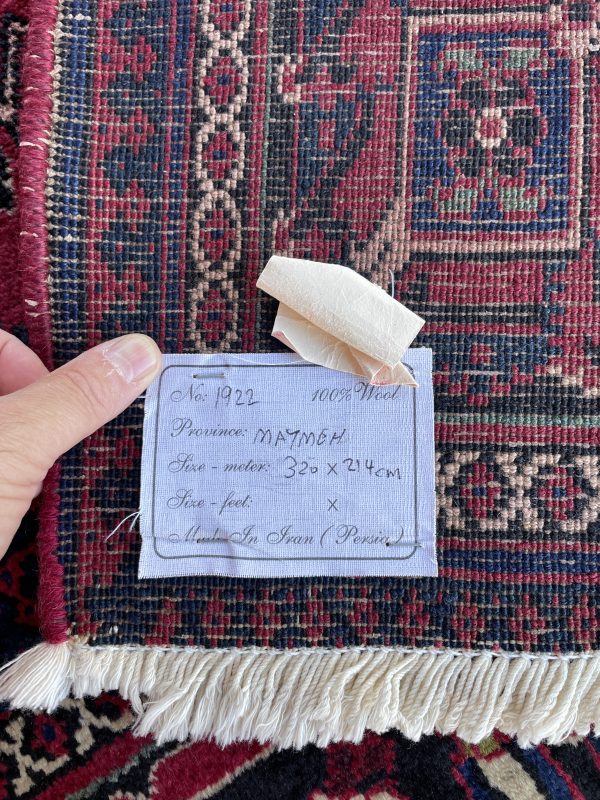 No: 1922 100% Wool
Province: MAYMEH
Size - meter: 320 x 214 cm
Size - feet: x
Made In Iran ( Persia )